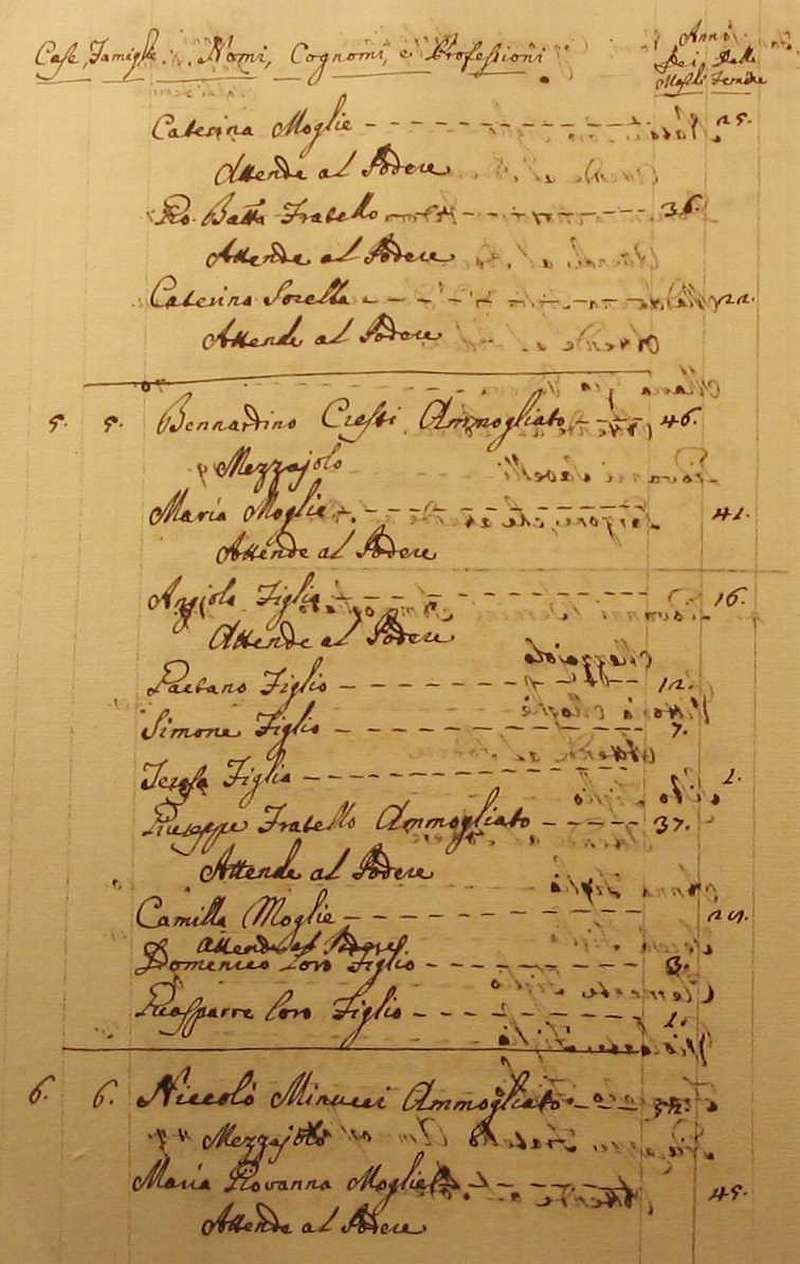 Case, Famiglie, Nomi, Cognomi, e Professioni Anni
Dei Delle
Maschi Femine
Caterina Moglie 25.
Attende al Podere
Gio. Batta Fratello 36.
Attende al Podere
Caterina Sorella 22.
Attende al Podere
5. 5. Bernardino Cresti Ammogliato 46.
Mezzajolo
Maria Moglie 41.
Attende al Podere
Angiola Figlia 16.
Attende al Podere
Gaetano Figlio 12.
Simone Figlio 7.
Teresa Figlia 1.
Giuseppe Fratello Ammogliato 37.
Attende al Podere
Camilla Moglie
Attende al Podere
Domenico loro Figlio 3.
Guasparre loro Figlio 1.
6. 6. Niccolò Minucci Ammogliato
Mezzajolo
Maria Giovanna Moglie 45.
Attende al Podere